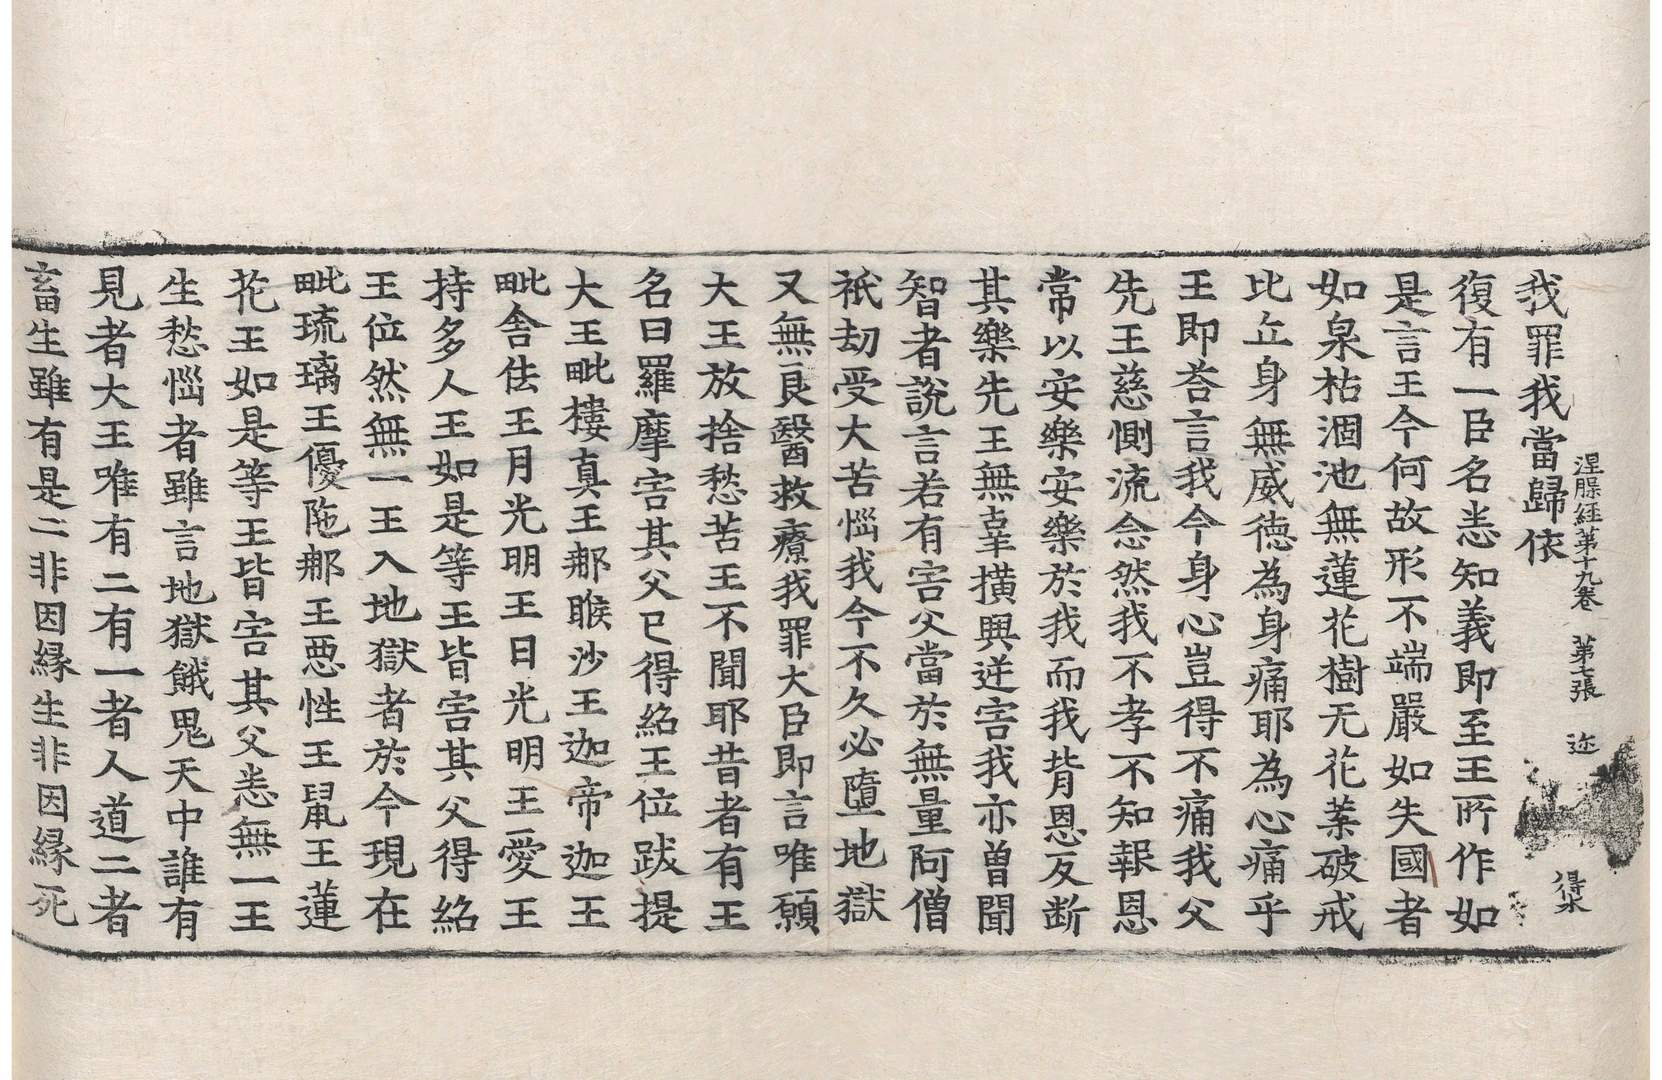 涅槃経第十九卷　第七張　迩　得水
我罪我當歸依
復有一臣名悉知義即至王所作如
是言王今何故形不端嚴如失國者
如泉枯涸池無蓮花樹无花葉破戒
比丘身無威德為身痛耶為心痛乎
王即荅言我今身心豈得不痛我父
先王慈惻流念然我不孝不知報恩
常以安樂安樂於我而我背恩反断
其樂先王無辜横興逆害我亦曾聞
智者說言若有害父當於無量阿僧
祇劫受大苦惱我今不久必墮地獄
又無良醫救療我罪大臣即言唯願
大王放捨愁苦王不聞耶昔者有王
名曰羅摩害其父已得紹王位跋提
大王毗樓真王那睺沙王迦帝迦王
毗舍佉王月光明王日光明王愛王
持多人王如是等王皆害其父得紹
王位然無一王入地獄者於今現在
毗琉璃王優陁那王惡性王鼠王蓮
花王如是等王皆害其父悉無一王
生愁惱者雖言地獄餓鬼天中誰有
見者大王唯有二有一者人道二者
畜生雖有是二非因縁生非因縁死